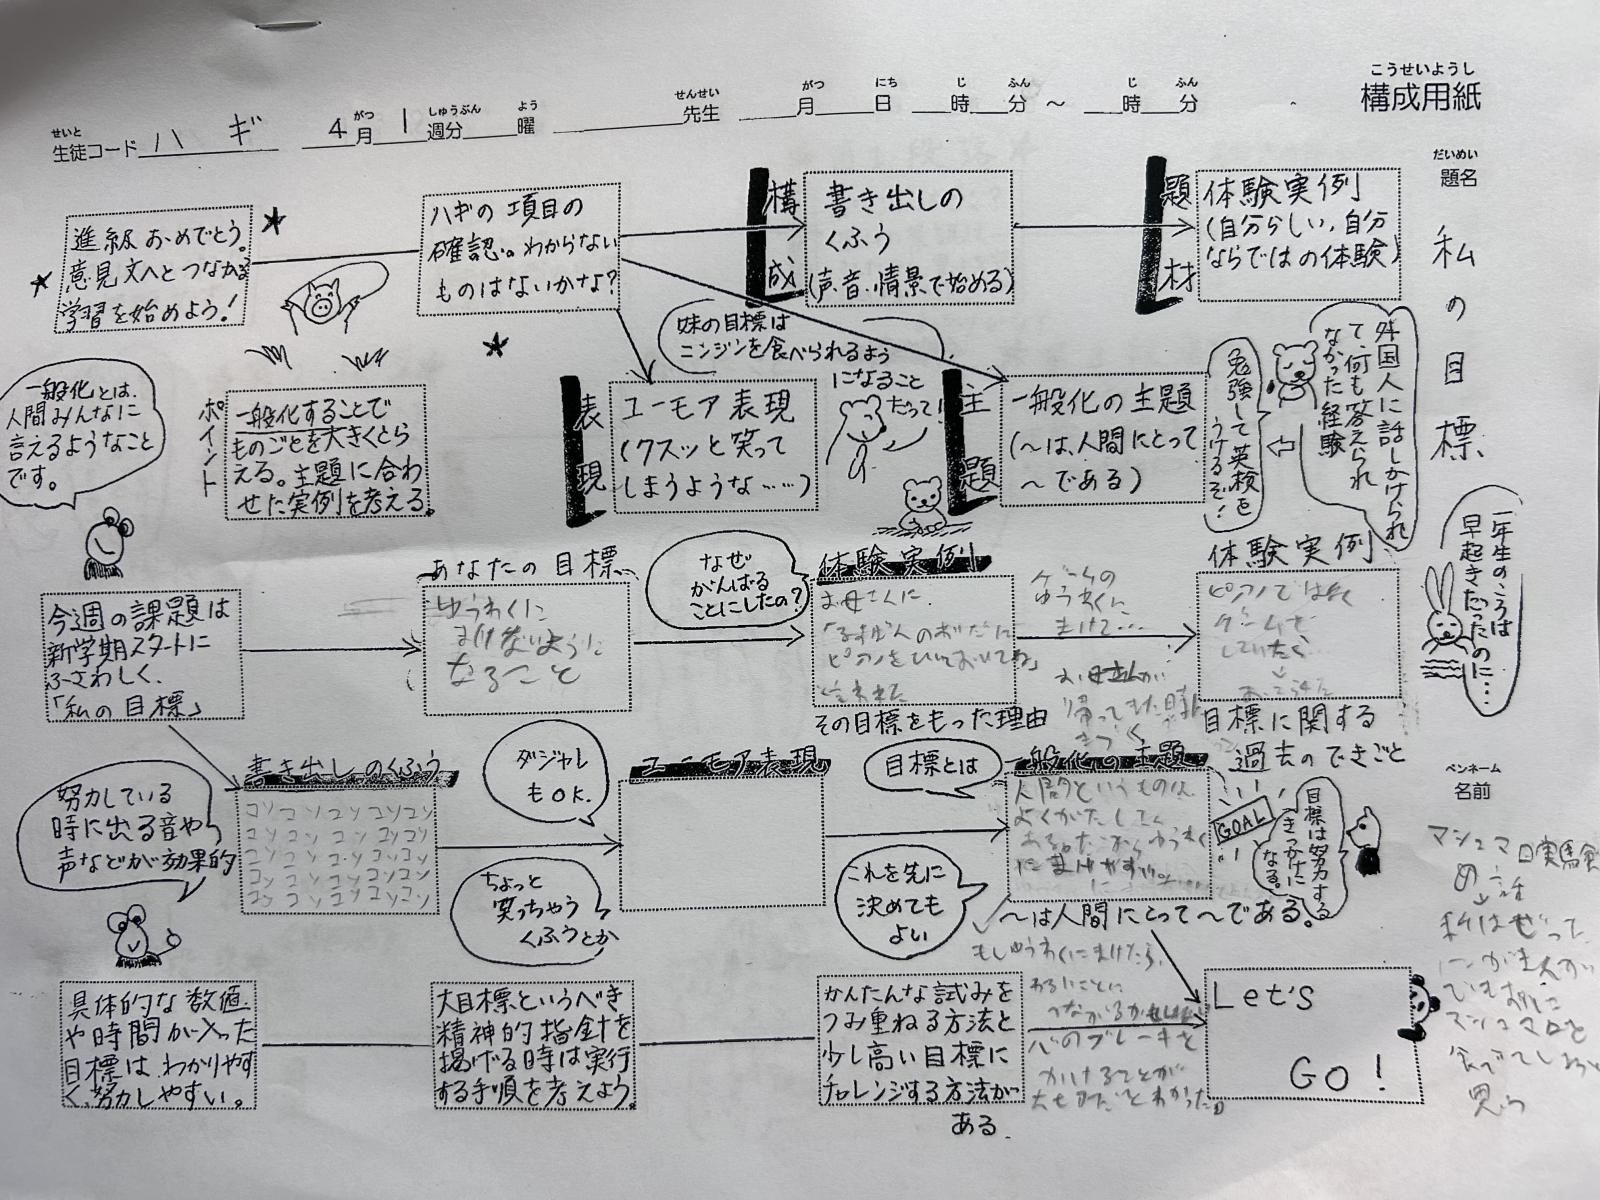 こうせいようし
構成用紙
せいと
生徒コード ハギ
がつ しゅうぶん よう
4月1週分 曜
せんせい
先生
がつ にち じ ふん じ ふん
月 日 時 分 ～ 時 分
だいめい
題名
私の目標
ペンネーム
名前
進級おめでとう。
意見文へとつながる
学習を始めよう！
ハギの項目の
確認。わからない
ものはないかな？
構成
書き出しの
くふう
(声、音、情景で始める)
題材
体験実例
(自分らしい、自分
ならではの体験)
一般化とは、
人間みんなに
言えるようなこと
です。
ポイント
一般化することで
ものごとを大きくとら
える。主題に合わ
せた実例を考える。
表現
ユーモア表現
(クスッと笑って
しまうような……)
妹の目標は
ニンジンを食べられるよう
になること
だって！
主題
一般化の主題
(～は、人間にとって
～である)
外国人に話しかけられ
て、何も答えられ
なかった経験
勉強して英検を
うけるぞ！
一年生のころは
早起きだったのに…
今週の課題は
新学期スタートに
ふさわしく、
「私の目標」
あなたの目標
ゆうわくに
まけないように
なること
なぜ
がんばる
ことにしたの？
体験実例
お母さんに
「るすばんのあいだに
ピアノをひいておいてね」
と言われた
その目標をもった理由
ゲームの
ゆうわくに
まけて…
お母さんが
帰ってきた時に
体験実例
ピアノではなく
ゲームを
していたら…
目標に関する
過去のできごと
努力している
時に出る音や
声などが効果的
書き出しのくふう
コツコツコツコツコツ
コツコツコツコツコツ
コツコツコツコツコツ
コツコツコツコツコツ
コツコツコツコツコツ
ダジャレ
もOK.
ちょっと
笑っちゃう
くふうとか
ユーモア表現
目標とは
これを先に
決めても
よい
一般化の主題
人間というものは、
～は人間にとって～である。
GOAL
目標は努力する
きっかけに
なる。
具体的な数値
や時間が入った
目標は、わかりやす
く、努力しやすい。
大目標というべき
精神的指針を
掲げる時は実行
する手順を考えよう。
かんたんな試みを
つみ重ねる方法と
少し高い目標に
チャレンジする方法が
ある
もしゆうわくにまけたら、
わるいことに
つながるかもしれない
心のブレーキを
かけることが
大切だとわかった。
Let's
GO！
マシュマロ実験
の話
私はぜったい
マシュマロを
食べてしまうと
思う